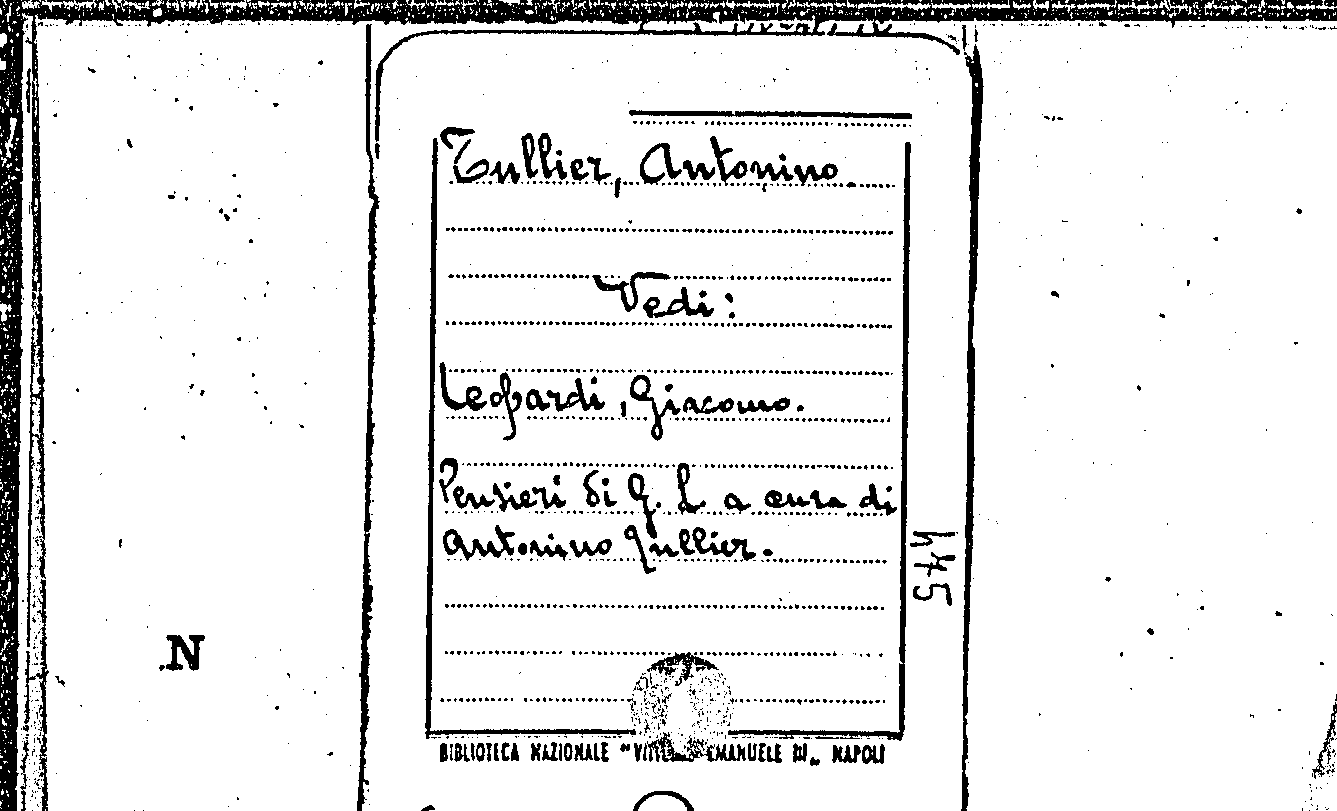 Tullier, Antonino.
Vedi:
Leopardi, Giacomo.
Pensieri di G. L. a cura di
Antonino Tullier.
445
N
BIBLIOTECA NAZIONALE "VITTORIO EMANUELE III„ NAPOLI